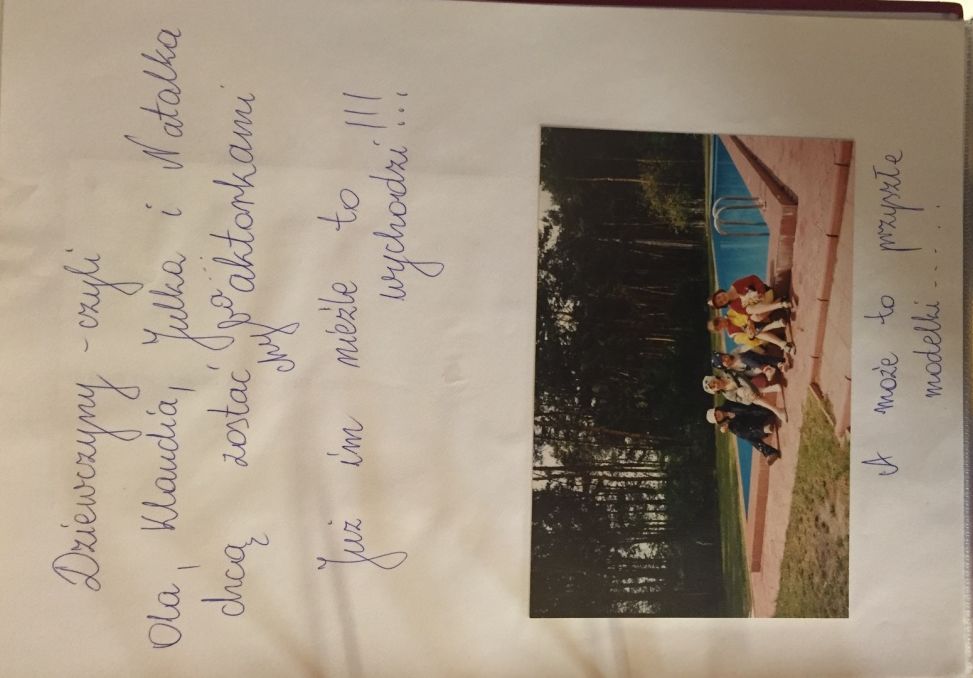 Dziewczyny - czyli
Ola, Klaudia, Julka i Natalka
chcą zostać aktorkami
Już im nieźle to
wychodzi!!!...
A może to przyszłe
modelki....